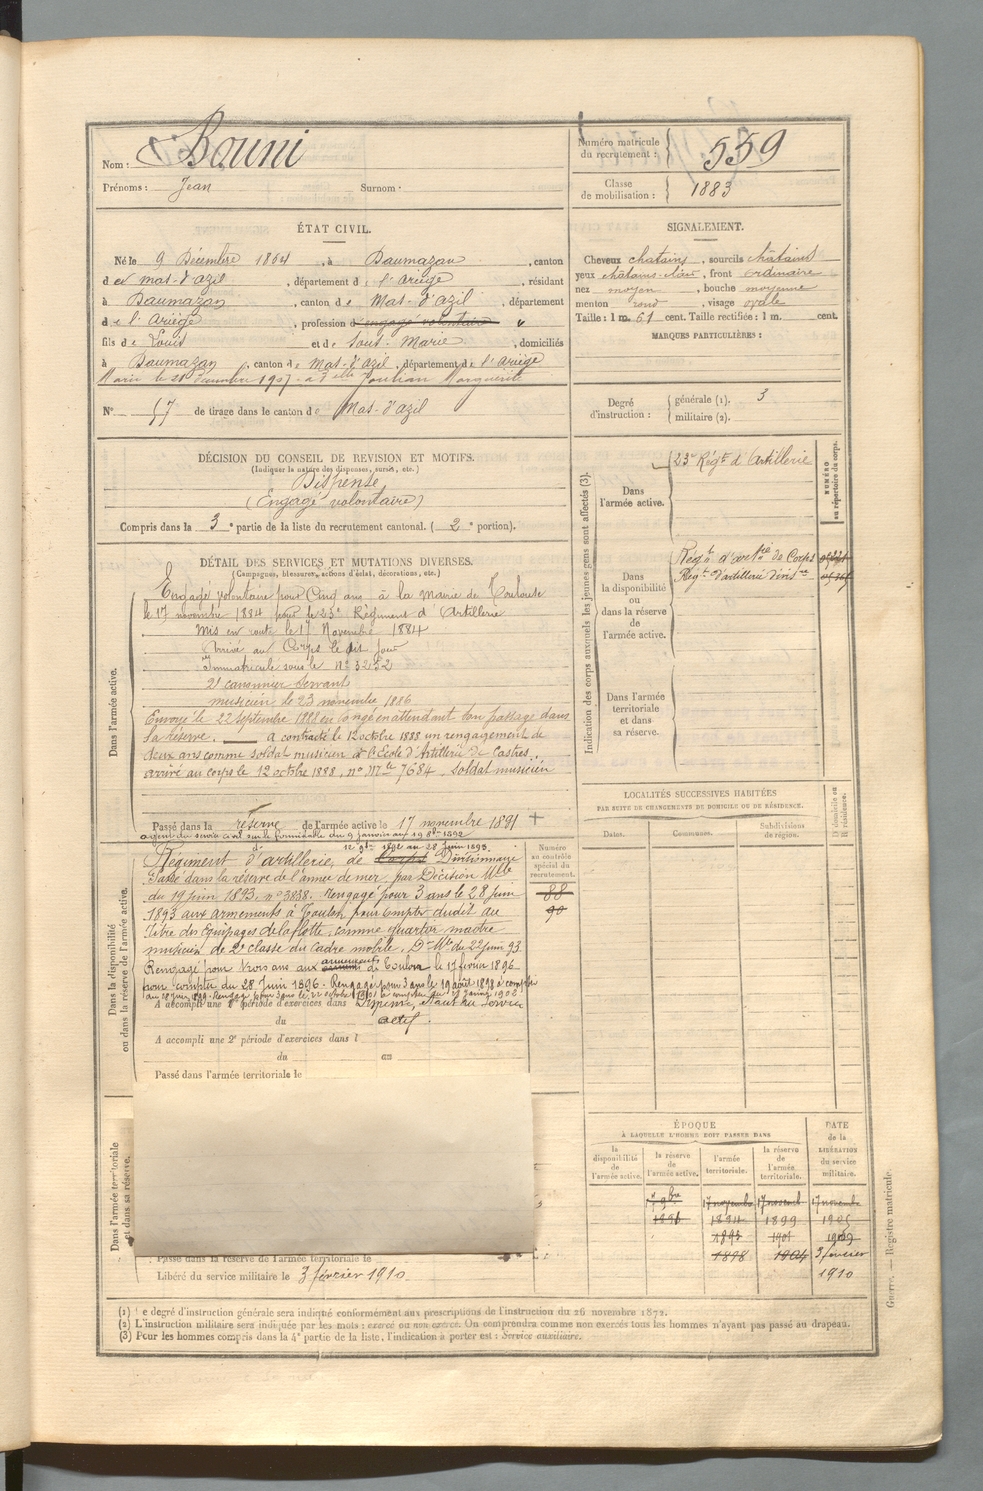 Nom : Bouni
Prénoms : Jean Surnom :
Numéro matricule du recrutement : 559
Classe de mobilisation : 1883
ÉTAT CIVIL.
Né le 9 Décembre 1864, à Daumazan, canton
d u mas-d'azil, département d e l'ariège, résidant
à Daumazan, canton d e Mas-d'azil, département
d e l'ariège, profession d'engagé volontaire
fils d e Louis et de Marie, domiciliés
à Daumazan, canton d e Mas-d'azil, département d e l'ariège
Marié le 21 décembre 1907 à Delle Marguerite
N° 57 de tirage dans le canton d e Mas-d'azil
SIGNALEMENT.
Cheveux chatains, sourcils châtains
yeux châtains-clair, front ordinaire
nez moyen, bouche moyenne
menton rond, visage ovale
Taille : 1 m. 61 cent. Taille rectifiée : 1 m. cent.
MARQUES PARTICULIÈRES :
Degré d'instruction : générale (1). 3
militaire (2).
DÉCISION DU CONSEIL DE REVISION ET MOTIFS.
(Indiquer la nature des dispenses, sursis, etc.)
Dispensé
(Engagé volontaire)
Compris dans la 3e partie de la liste du recrutement cantonal. (2e portion).
DÉTAIL DES SERVICES ET MUTATIONS DIVERSES.
(Campagnes, blessures, actions d'éclat, décorations, etc.)
Dans l'armée active.
Engagé volontaire pour Cinq ans à la mairie de Toulouse
le 17 novembre 1884 pour le 23e Régiment d'Artillerie
Mis en route le 17 Novembre 1884
Arrivé au Corps le dit jour
Immatriculé sous le n° 3252
2e canonnier Servant
musicien le 23 novembre 1886
Envoyé le 22 septembre 1888 en congé en attendant son passage dans
la réserve. A contracté le 12 octobre 1888 un rengagement de
deux ans comme soldat musicien à l'Ecole d'Artillerie de Castres.
arrivé au corps le 12 octobre 1888, n° Mle 7684. Soldat musicien
Passé dans la réserve de l'armée active le 17 novembre 1891
Dans la disponibilité ou dans la réserve de l'armée active.
Régiment d'artillerie, de Corps Divisionnaire
Passé dans la réserve de l'armée de mer, par Décision Mlle
du 19 juin 1893, n° 3838. Rengagé pour 3 ans le 28 juin
1893 aux armements à Toulon, pour compter dudit au
titre des équipages de la flotte, comme quartier maître
musicien de 2e classe du cadre mobile. D. Mle du 22 juin 93
Rengagé pour trois ans aux armements de Toulon le 17 février 1896
pour compter du 28 Juin 1896. Rengagé pour 3 ans le 19 août 1898 à compter
A accompli une 1re période d'exercices dans Dispensé, étant au service
du actif.
A accompli une 2e période d'exercices dans l
du au
Passé dans l'armée territoriale le
Numéro au contrôle spécial du recrutement.
88
90
Dans l'armée territoriale et dans sa réserve.
Passé dans la réserve de l'armée territoriale le
Libéré du service militaire le 3 février 1910.
Indication des corps auxquels les jeunes gens sont affectés (3).
NUMÉRO au répertoire du corps.
Dans l'armée active.
23e Régt d'Artillerie
Dans la disponibilité ou dans la réserve de l'armée active.
Régt d'artie de Corps
Régt d'artillerie divisre
Dans l'armée territoriale et dans sa réserve.
LOCALITÉS SUCCESSIVES HABITÉES
PAR SUITE DE CHANGEMENTS DE DOMICILE OU DE RÉSIDENCE.
Dates. Communes. Subdivisions de région. D domicile ou R résidence.
ÉPOQUE
À LAQUELLE L'HOMME DOIT PASSER DANS
la disponibilité de l'armée active. la réserve de l'armée active. l'armée territoriale. la réserve de l'armée territoriale.
DATE de la LIBÉRATION du service militaire.
17 novembre 17 novemb. 17 novemb
1894 1899 1905
1898 1904 3 février
1910
Guerre. — Registre matricule.
(1) Le degré d'instruction générale sera indiqué conformément aux prescriptions de l'instruction du 26 novembre 1872.
(2) L'instruction militaire sera indiquée par les mots : exercé ou non exercé. On comprendra comme non exercés tous les hommes n'ayant pas passé au drapeau.
(3) Pour les hommes compris dans la 4e partie de la liste, l'indication à porter est : Service auxiliaire.